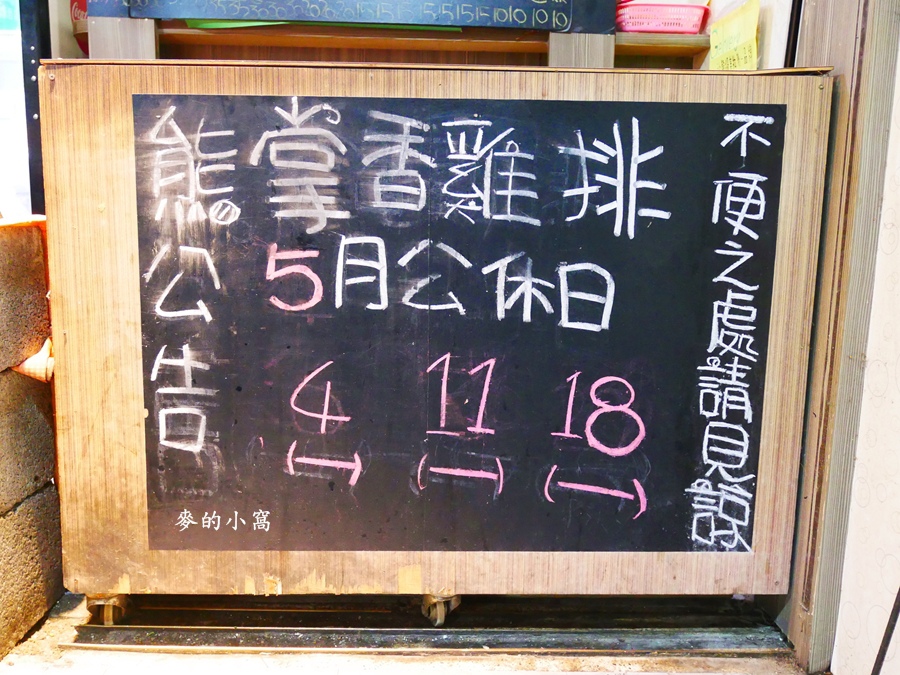 15 15 15 10 10 10 10
熊掌香雞排
公告
5月公休日
4 11 18
(一) (一) (一)
不便之處請見諒
麥的小窩